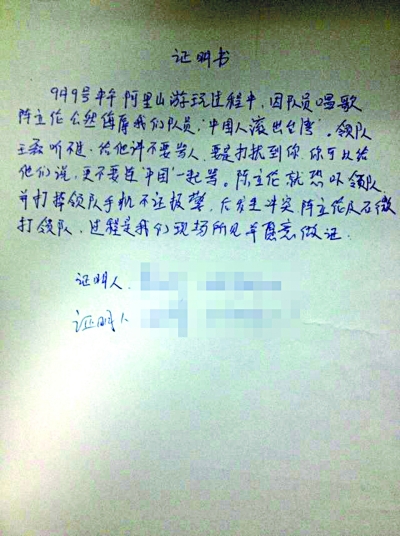 证明书
9月9号中午阿里山游玩过程中,因队员唱歌
陈立伦公然侮辱我们队员,“中国人滚出台湾”。领队
王磊听不进,给他讲不要骂人,要是打扰到你,你可以给
他们说,更不要连“中国”一起骂。陈立伦就恐吓领队
并打掉领队手机不让报警,后发生冲突陈立伦及石
打领队,过程是我们现场所见并愿意做证.
证明人:
证明人